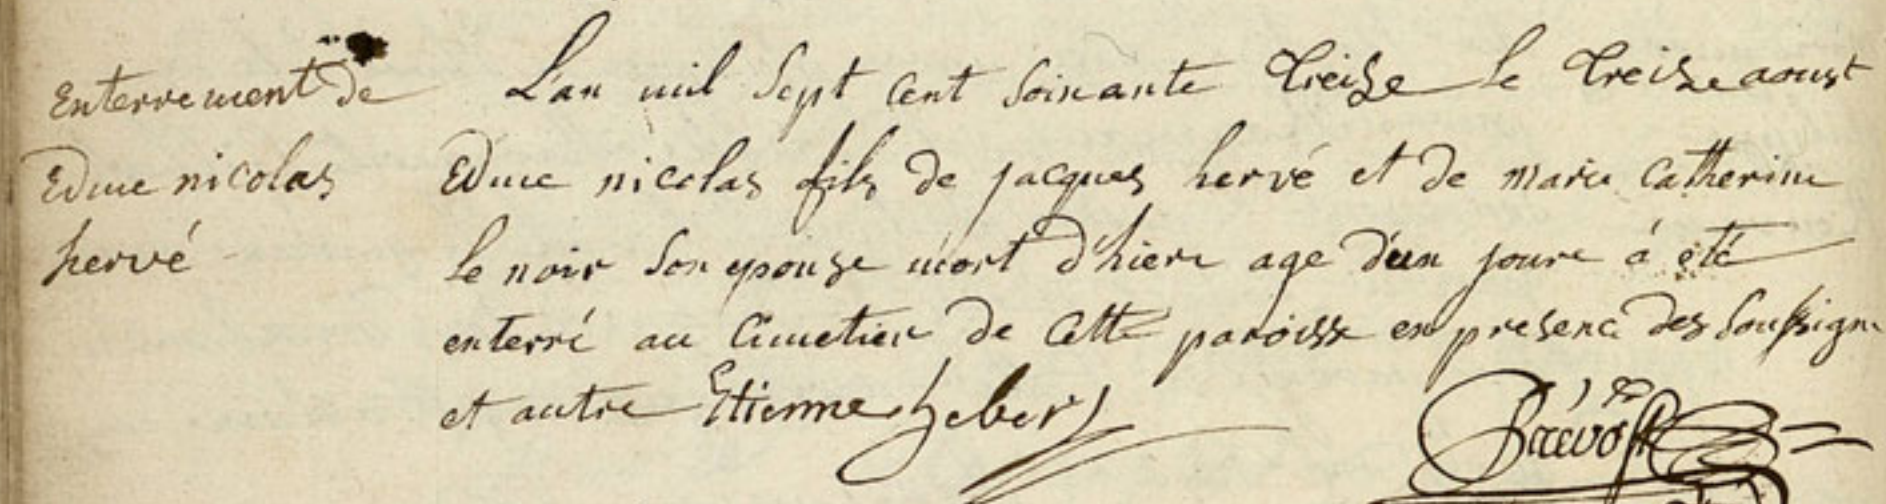 Enterrement de
Edme nicolas
hervé
L'an mil Sept cent soixante treize le treize aoust
Edme nicolas fils de jacques hervé et de marie catherine
le noir son epouse mort d'hiere age d'un joure á été
enterré au cimetier de cette paroisse en presence des soussigné
et autre Etienne heber
Prévost